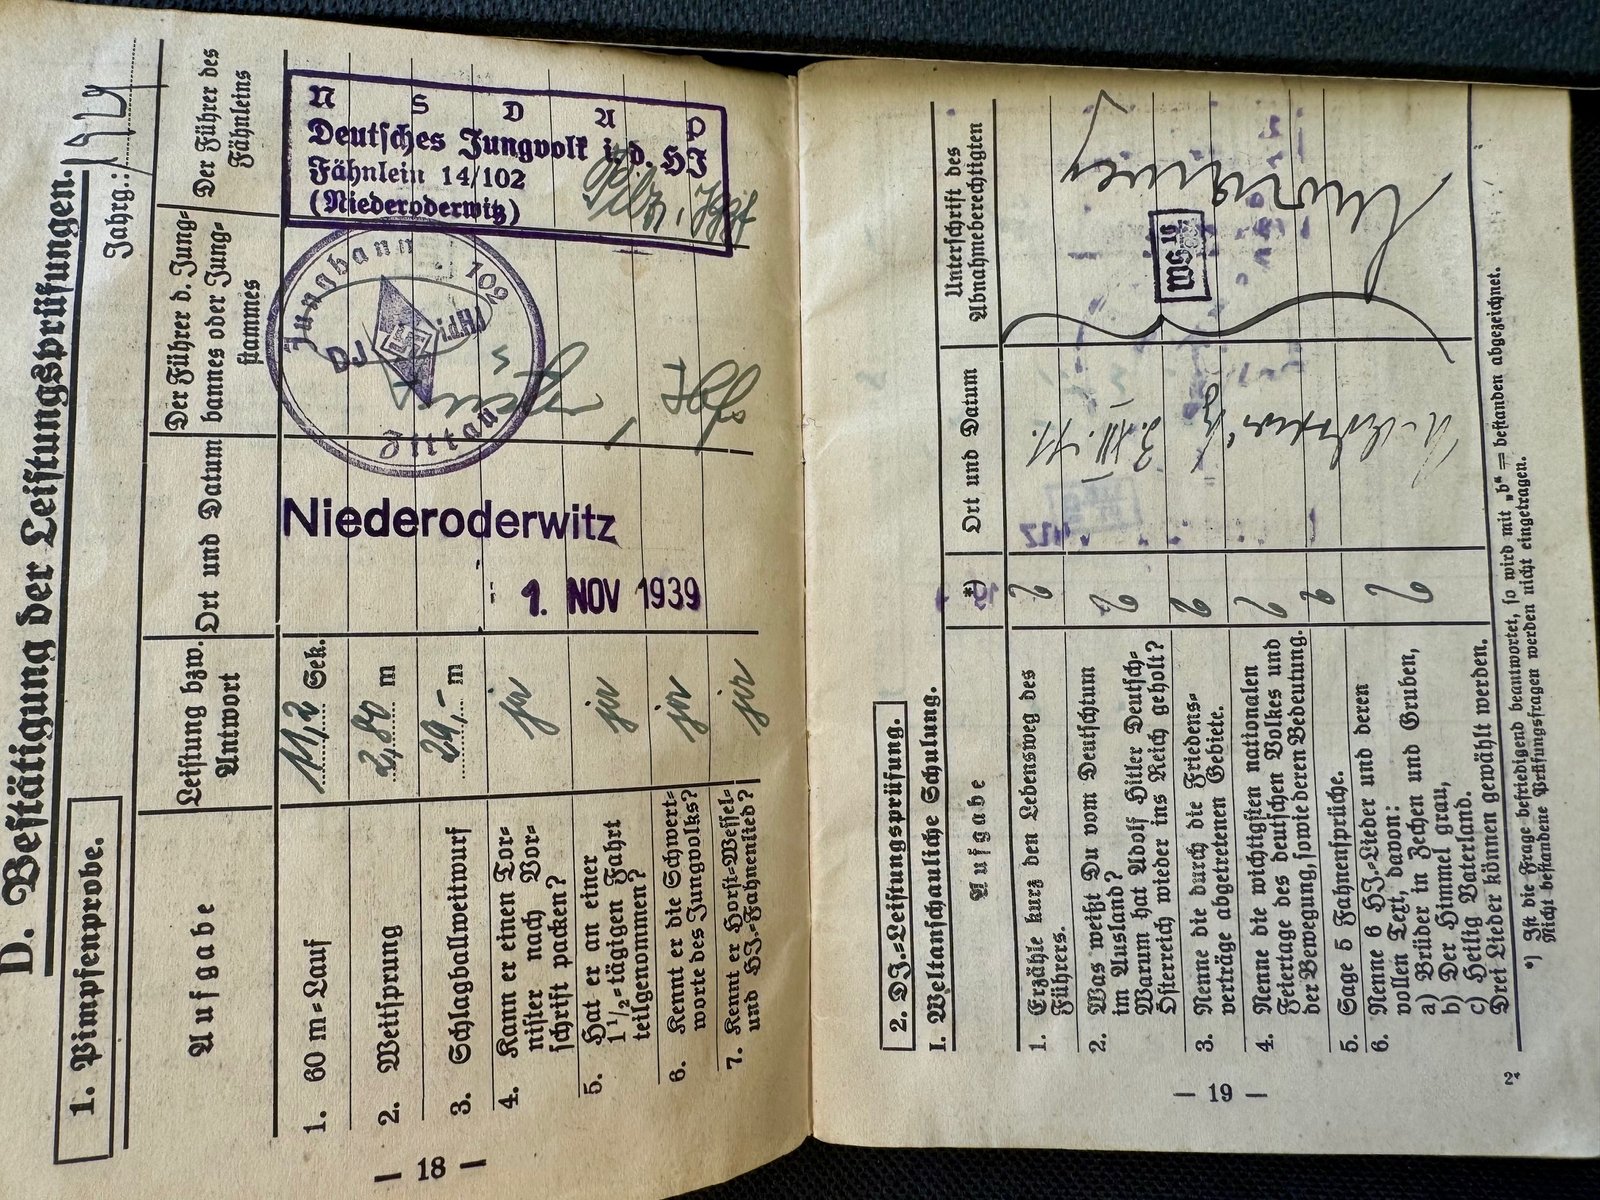 D. Bestätigung der Leistungsprüfungen.
1. Pimpfenprobe.
Jahrg.:
Aufgabe
Leistung bzw.
Antwort
Ort und Datum
Der Führer d. Jung-
bannes oder Jung-
stammes
Der Führer des
Fähnleins
1. 60 m=Lauf
11,2 Sek.
2. Weitsprung
2,80 m
3. Schlagballweitwurf
29,- m
4. Kann er einen Tor-
nister nach Vor-
schrift packen?
ja
5. Hat er an einer
1 1/2=tägigen Fahrt
teilgenommen?
ja
6. Kennt er die Schwert-
worte des Jungvolks?
ja
7. Kennt er Horst=Wessel-
und HJ.=Fahnenlied?
ja
Niederoderwitz
1. NOV 1939
Jungbann 102
DJ
Zittau
N S D A P
Deutsches Jungvolk i. d. HJ
Fähnlein 14/102
(Niederoderwitz)
— 18 —
2. DJ.=Leistungsprüfung.
I. Weltanschauliche Schulung.
Aufgabe
*)
Ort und Datum
Unterschrift des
Abnahmeberechtigten
1. Erzähle kurz den Lebensweg des
Führers.
2. Was weißt Du vom Deutschtum
im Ausland?
Warum hat Adolf Hitler Deutsch-
Österreich wieder ins Reich geholt?
3. Nenne die durch die Friedens-
verträge abgetretenen Gebiete.
4. Nenne die wichtigsten nationalen
Feiertage des deutschen Volkes und
der Bewegung, sowie deren Bedeutung.
5. Sage 5 Fahnensprüche.
6. Nenne 6 HJ.=Lieder und deren
vollen Text, davon:
a) Brüder in Zechen und Gruben,
b) Der Himmel grau,
c) Heilig Vaterland.
Drei Lieder können gewählt werden.
WS 16
*) Ist die Frage befriedigend beantwortet, so wird mit „b“ = bestanden abgezeichnet.
Nicht bestandene Prüfungsfragen werden nicht eingetragen.
— 19 —
2*